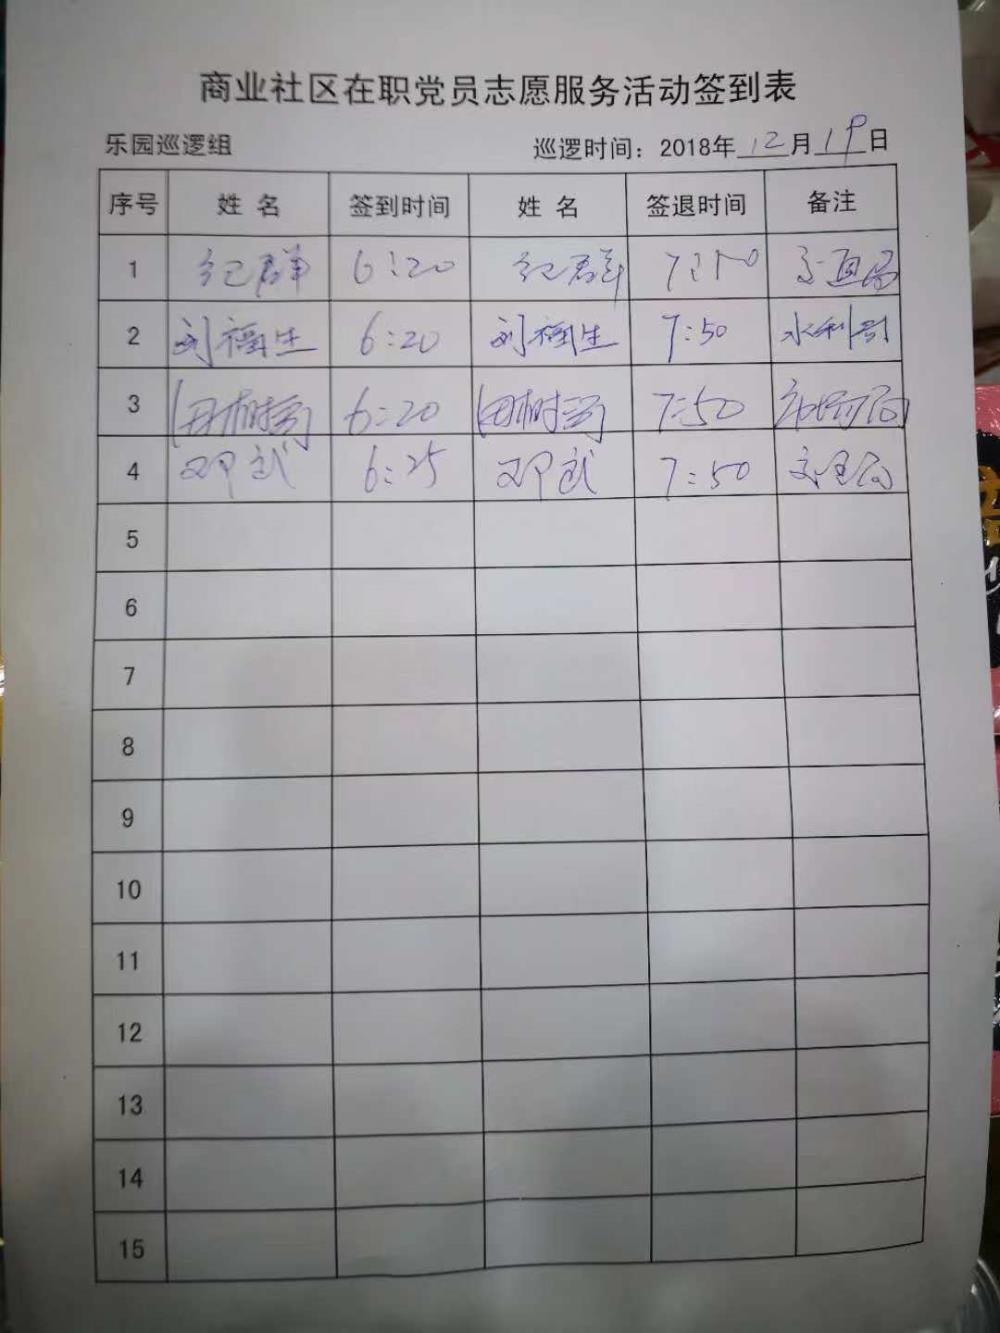 商业社区在职党员志愿服务活动签到表
乐园巡逻组 巡逻时间：2018年12月19日
序号 姓名 签到时间 姓名 签退时间 备注
1 纪群 6:20 纪群 7:50
2 刘福生 6:20 刘福生 7:50 水利局
3 6:20 7:50 市场局
4 邓武 6:25 邓武 7:50
5
6
7
8
9
10
11
12
13
14
15